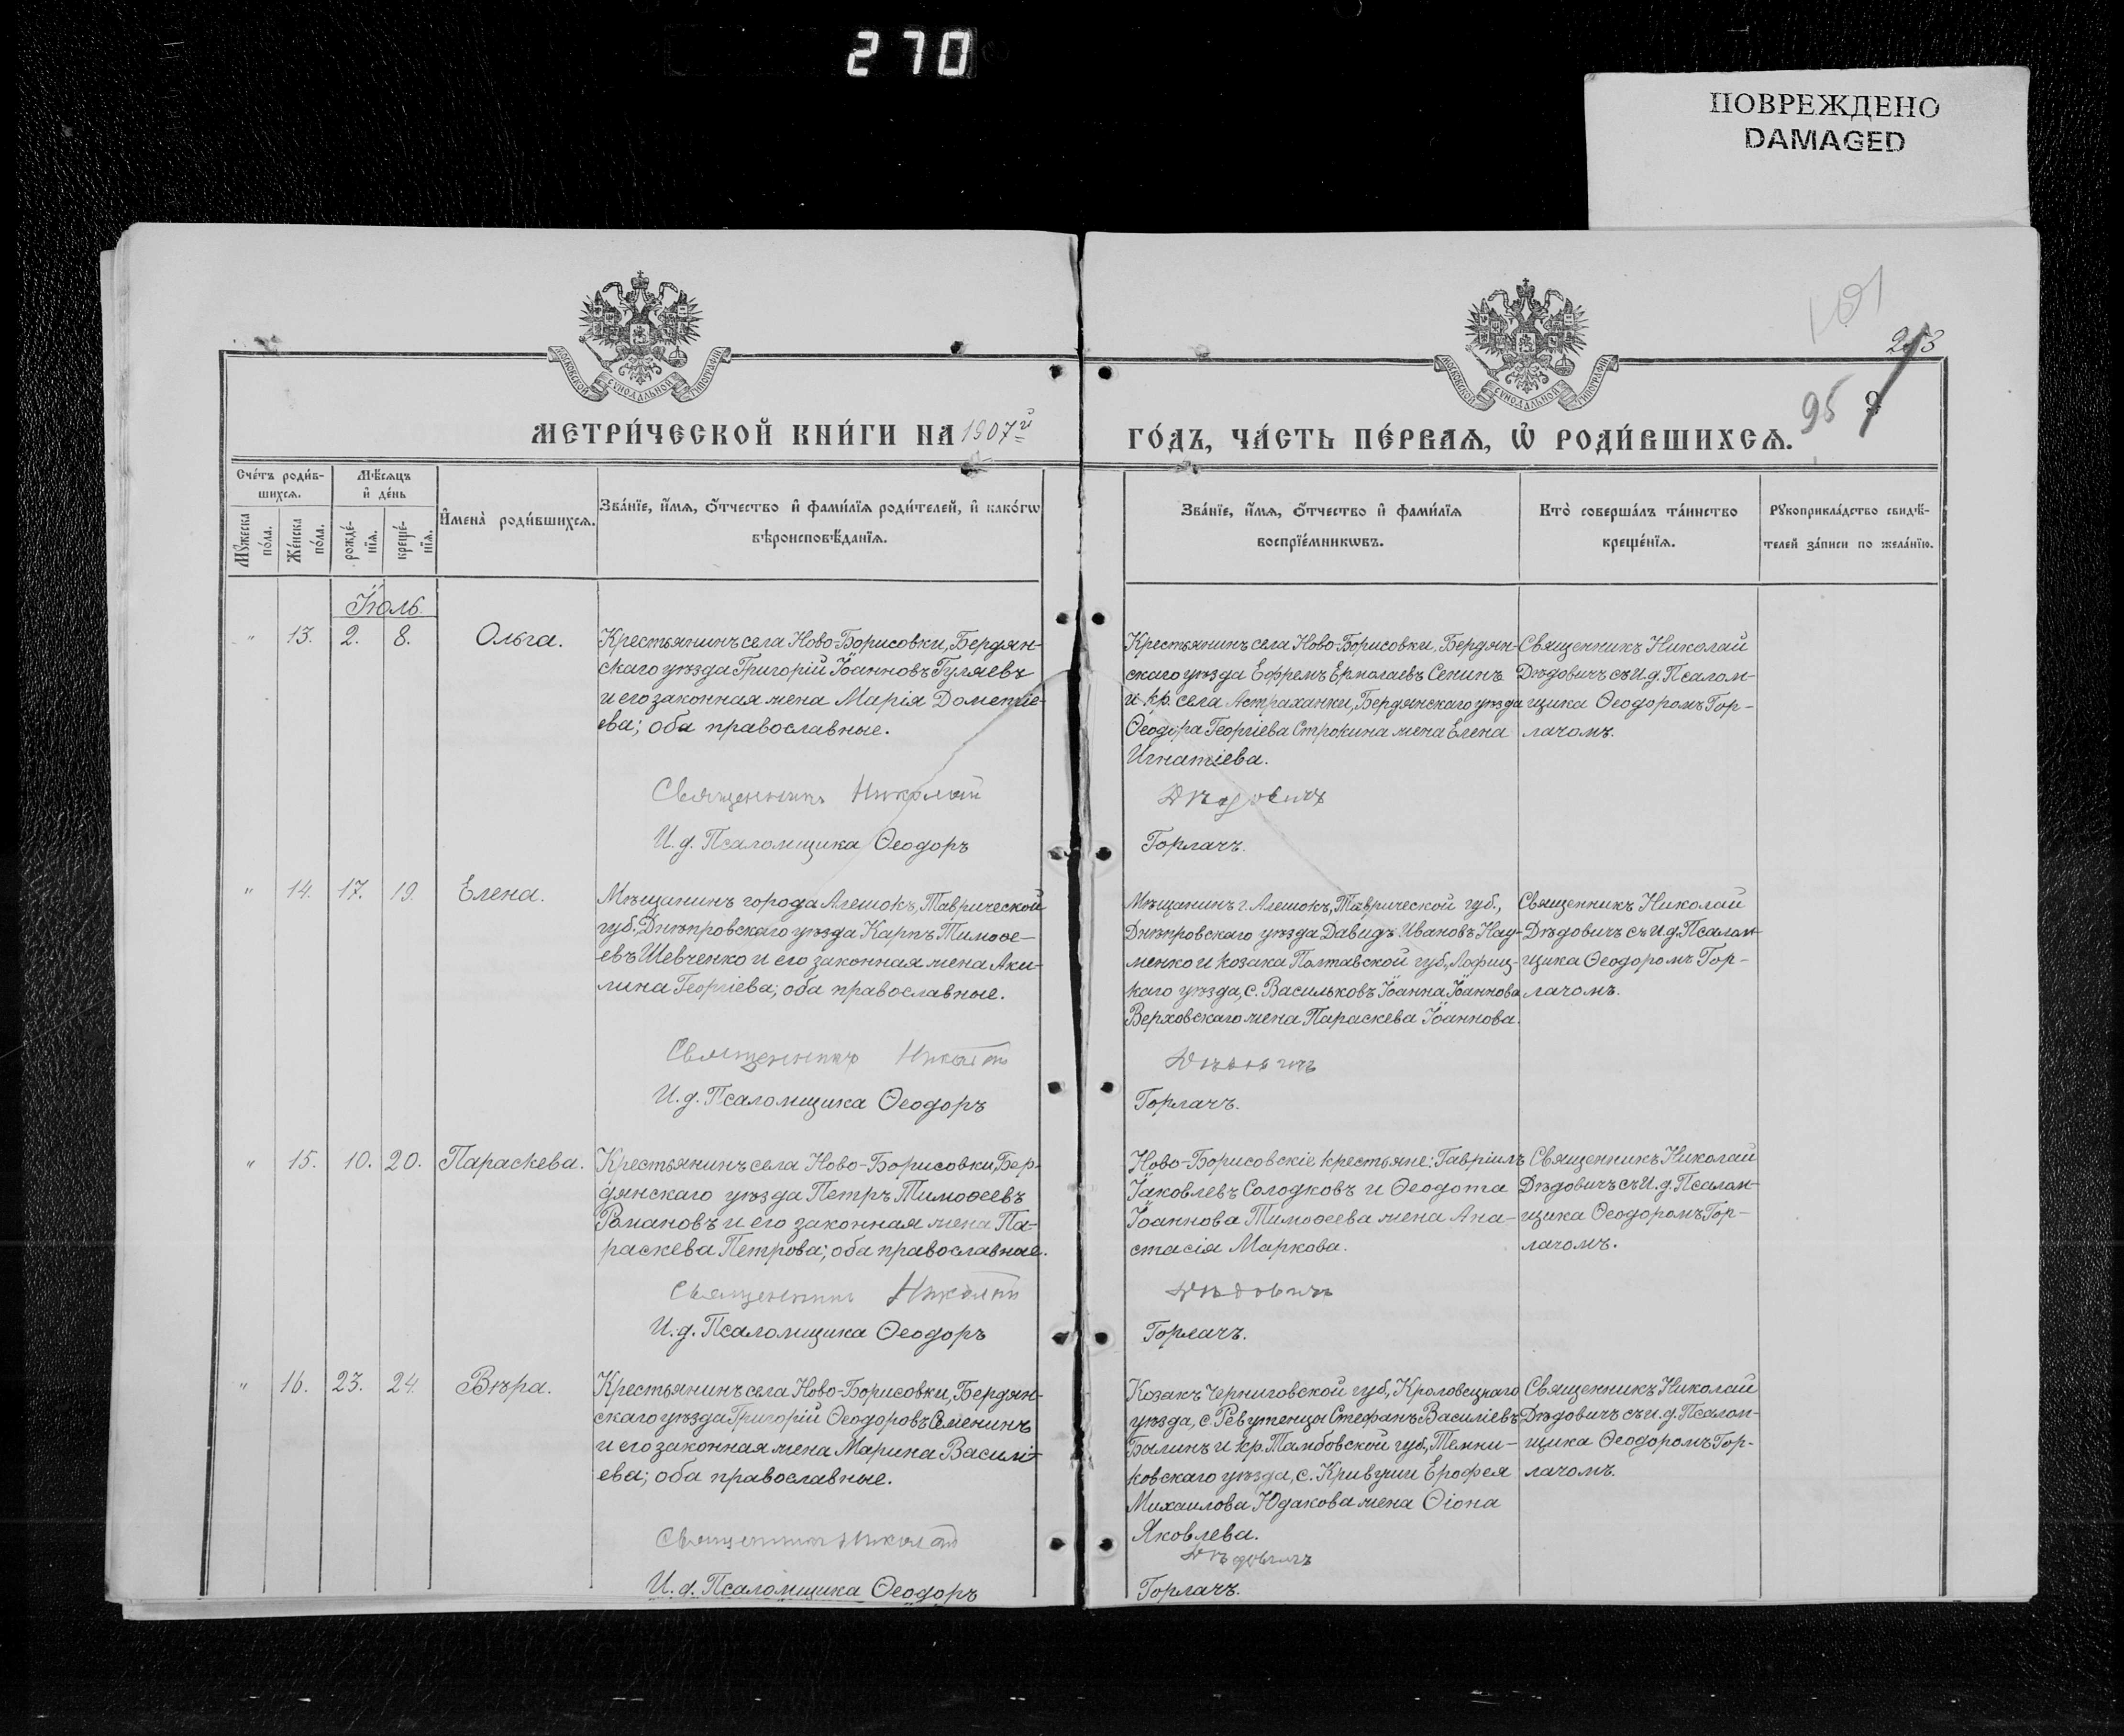 270
ПОВРЕЖДЕНО
DAMAGED
101
253
95
9
МОСКОВСКОЙ СУНОДАЛЬНОЙ ТИПОГРАФІИ
МОСКОВСКОЙ СУНОДАЛЬНОЙ ТИПОГРАФІИ
МЕТРИ́ЧЕСКОЙ КНИ́ГИ НА 1907й
ГО́ДЪ, ЧА́СТЬ ПЕ́РВАѦ, Ѡ РОДИ́ВШИХСѦ.
Сче́тъ роди́в-
шихсѧ.
Мѣ́сѧцъ
и҆ де́нь
Мꙋжеска по́ла.
Же́нска по́ла.
рожде́-нїѧ.
креще́-нїѧ.
И҆мена̀ роди́вшихсѧ.
Зва́нїе, и҆́мѧ, ѻ҆́тчество и҆ фами́лїѧ роди́телей, и҆ како́гѡ
вѣроисповѣ́данїѧ.
Зва́нїе, и҆́мѧ, ѻ҆́тчество и҆ фами́лїѧ
воспрїе́мникѡвъ.
Кто̀ соверша́лъ та́инство
креще́нїѧ.
Рꙋкоприкла́дство свидѣ́-
телей за́писи по жела́нїю.
Іюль
" 13. 2. 8. Ольга.
Крестьянинъ села Ново-Борисовки, Бердян-
скаго уѣзда Григорій Іоанновъ Гуляевъ
и его законная жена Марія Дометіе-
ева; оба православные.
Священникъ Николай
И. д. Псаломщика Ѳеодоръ
Крестьянинъ села Ново-Борисовки, Бердян-
скаго уѣзда Ефремъ Ермолаевъ Сенинъ
и кр. села Астраханки, Бердянскаго уѣзда
Ѳеодора Георгіева Строкина жена Елена
Игнатіева.
Дѣдовичъ
Горлачъ.
Священникъ Николай
Дѣдовичъ съ И. д. Псалом-
щика Ѳеодоромъ Гор-
лачомъ.
" 14. 17. 19. Елена.
Мѣщанинъ города Алешокъ, Таврической
губ., Днѣпровскаго уѣзда Карпъ Тимоѳе-
евъ Шевченко и его законная жена Аки-
лина Георгіева; оба православные.
Священникъ Николай
И. д. Псаломщика Ѳеодоръ
Мѣщанинъ г. Алешокъ, Таврической губ.,
Днѣпровскаго уѣзда Давидъ Ивановъ Нау-
менко и козака Полтавской губ., Лофиц-
каго уѣзда, с. Васильковъ Іоанна Іоаннова
Верховскаго жена Параскева Іоаннова.
Дѣдовичъ
Горлачъ.
Священникъ Николай
Дѣдовичъ съ И. д. Псалом-
щика Ѳеодоромъ Гор-
лачомъ.
" 15. 10. 20. Параскева.
Крестьянинъ села Ново-Борисовки, Бер-
дянскаго уѣзда Петръ Тимоѳеевъ
Романовъ и его законная жена Па-
раскева Петрова; оба православные.
Священникъ Николай
И. д. Псаломщика Ѳеодоръ
Ново-Борисовскіе крестьяне: Гавріилъ
Іаковлевъ Солодковъ и Ѳеодота
Іоаннова Тимоѳеева жена Ана-
стасія Маркова.
Дѣдовичъ
Горлачъ.
Священникъ Николай
Дѣдовичъ съ И. д. Псалом-
щика Ѳеодоромъ Гор-
лачомъ.
" 16. 23. 24. Вѣра.
Крестьянинъ села Ново-Борисовки, Бердян-
скаго уѣзда Григорій Ѳеодоровъ Семенинъ
и его законная жена Марина Василі-
ева; оба православные.
Священникъ Николай
И. д. Псаломщика Ѳеодоръ
Козакъ Черниговской губ., Кролевецкаго
уѣзда, с. Ревутенцы Стефанъ Василіевъ
Былинъ и кр. Тамбовской губ., Темни-
ковскаго уѣзда, с. Кривуши Ерофея
Михаилова Юдакова жена Ѳіона
Яковлева.
Дѣдовичъ
Горлачъ.
Священникъ Николай
Дѣдовичъ съ И. д. Псалом-
щика Ѳеодоромъ Гор-
лачомъ.